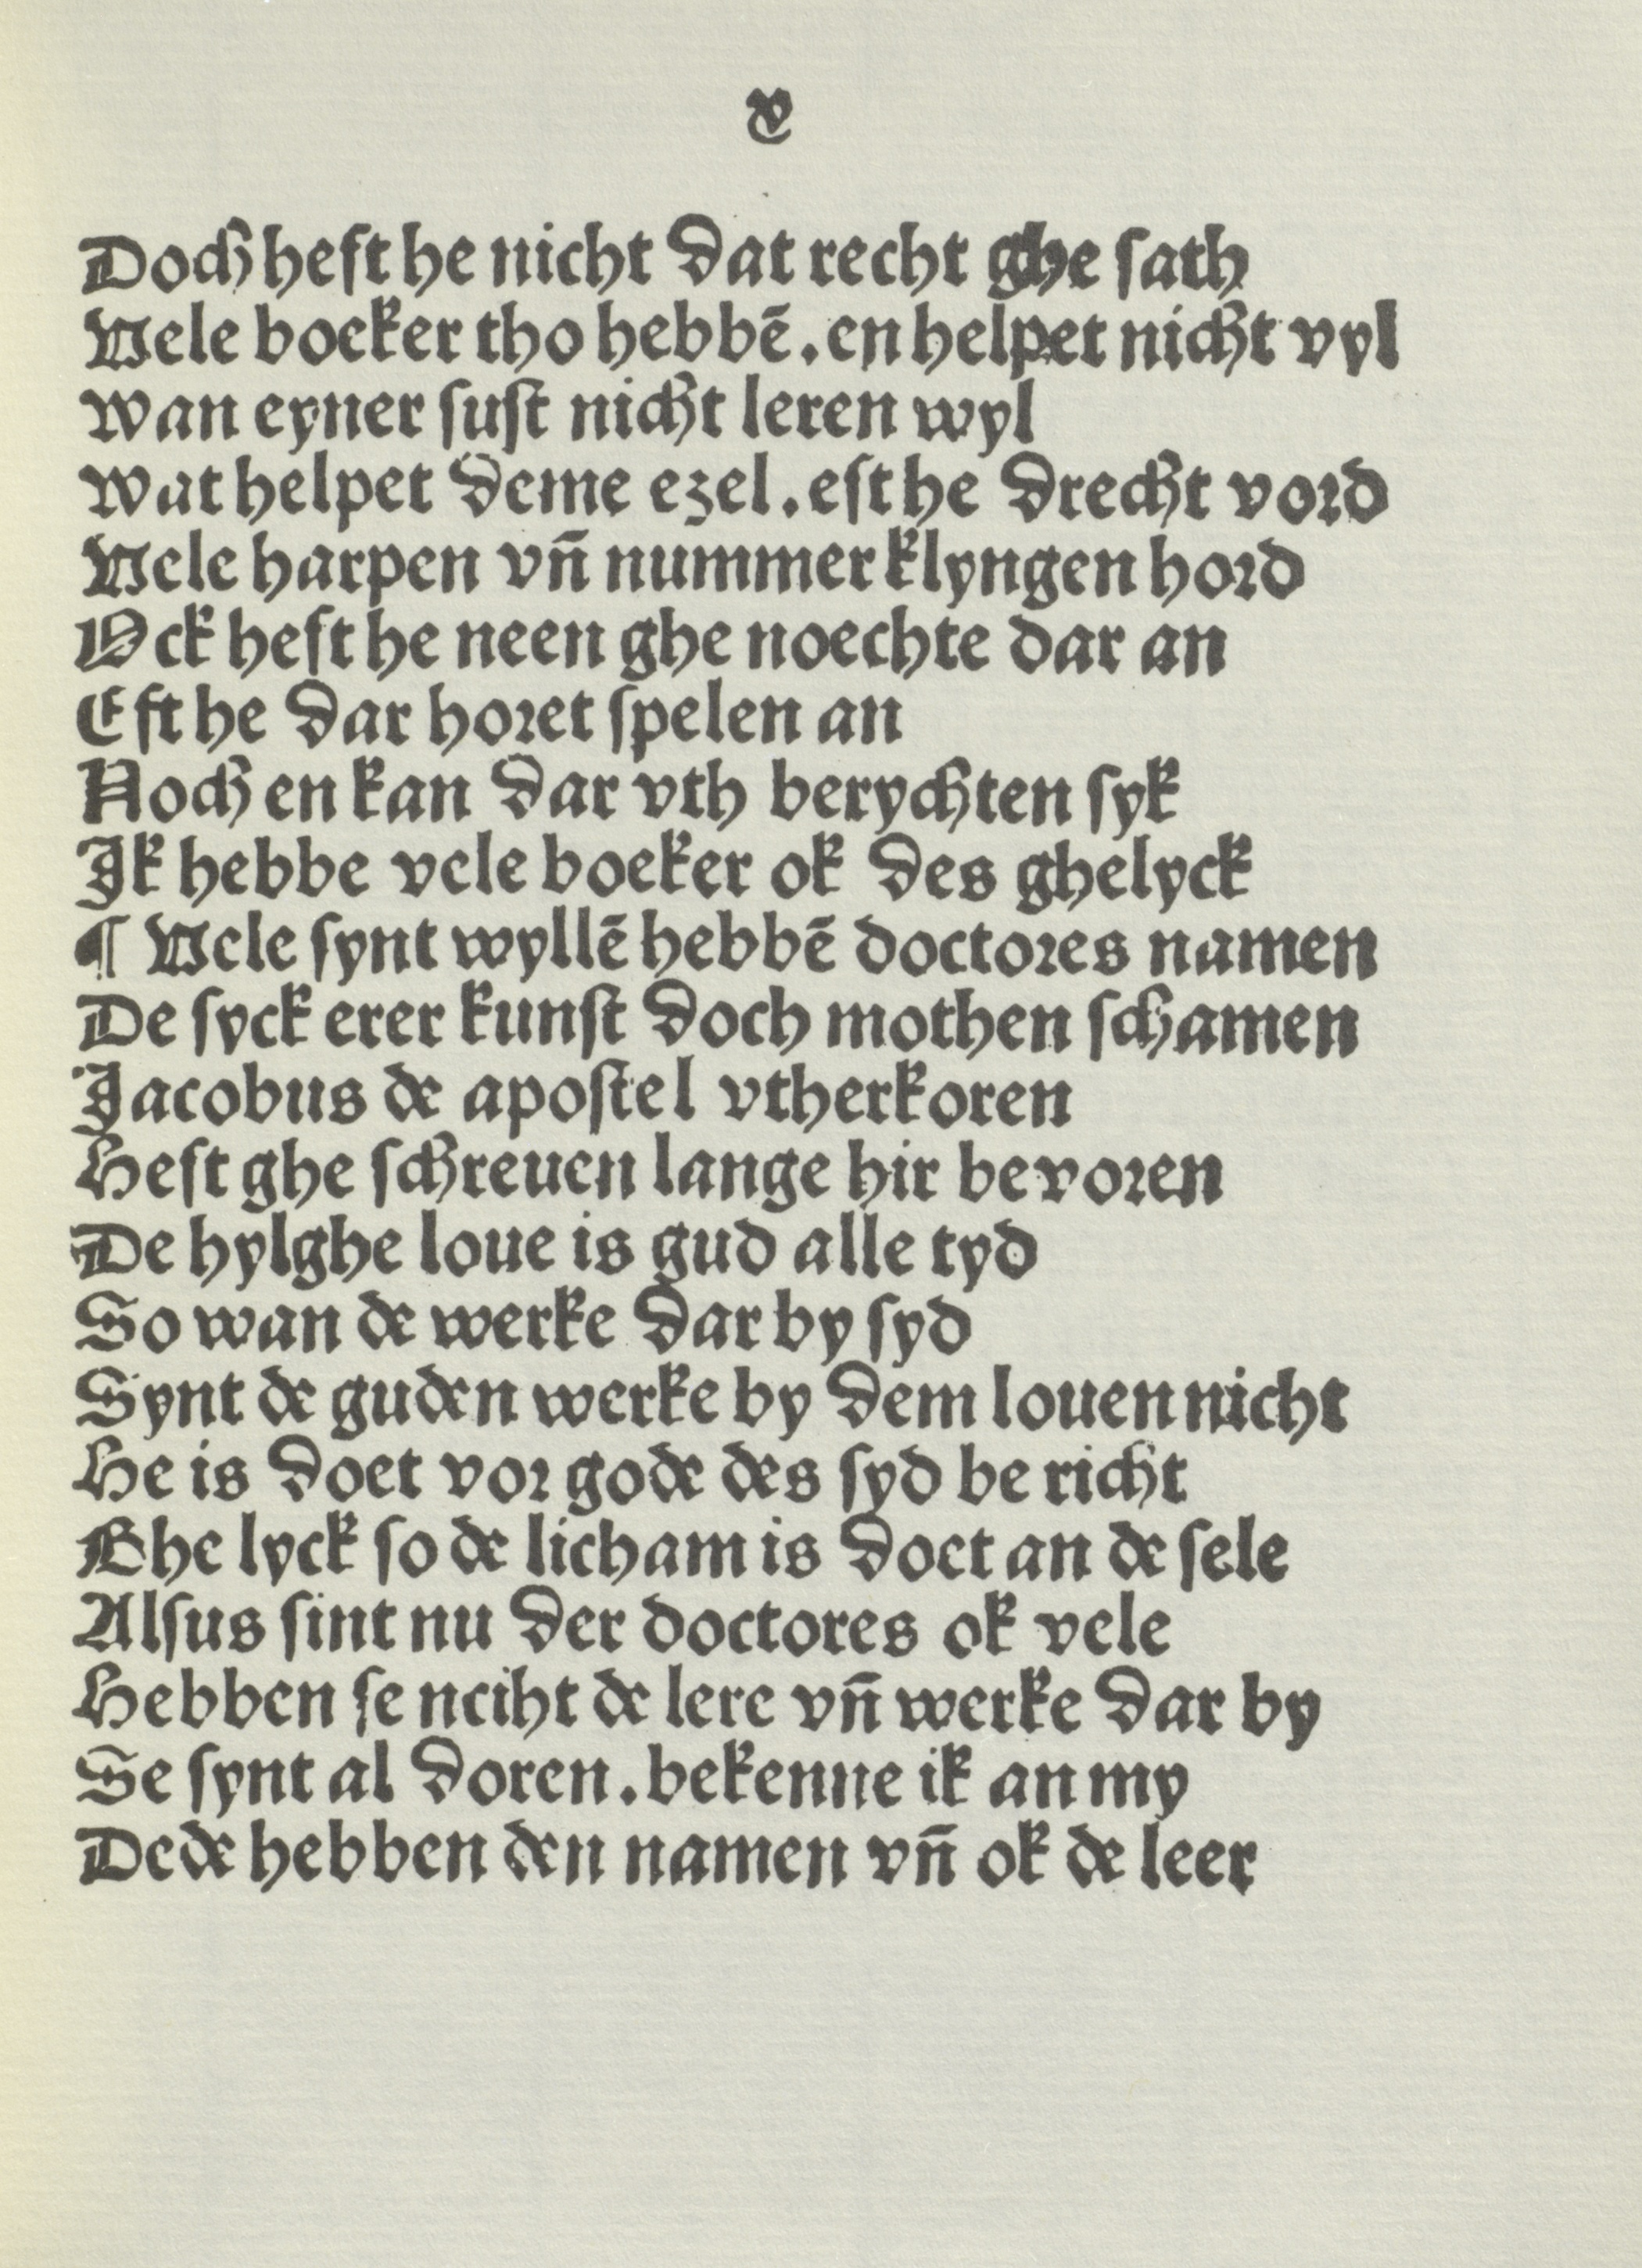 v
Doch heft he nicht dat recht ghe ſath
Vele boeker tho hebbē. en helpet nicht vyl
Wan eyner ſuſt nicht leren wyl
Wat helpet deme ezel. eft he drecht vord
Vele harpen vn̄ nummer klyngen hord
Ock heft he neen ghe noechte dar an
Eft he dar horet ſpelen an
Noch en kan dar vth berychten ſyk
Ik hebbe vele boeker ok des ghelyck
¶ Vele ſynt wyllē hebbē doctores namen
De ſyck erer kunſt doch mothen ſchamen
Jacobus de apoſtel vtherkoren
Heft ghe ſchreuen lange hir bevoren
De hylghe loue is gud alle tyd
So wan de werke dar by ſyd
Synt de guden werke by dem louen nicht
He is doet vor gode des ſyd be richt
Ghe lyck ſo de licham is doet an de ſele
Alſus ſint nu der doctores ok vele
Hebben ſe nciht de lere vn̄ werke dar by
Se ſynt al doren. bekenne ik an my
Dede hebben den namen vn̄ ok de leer